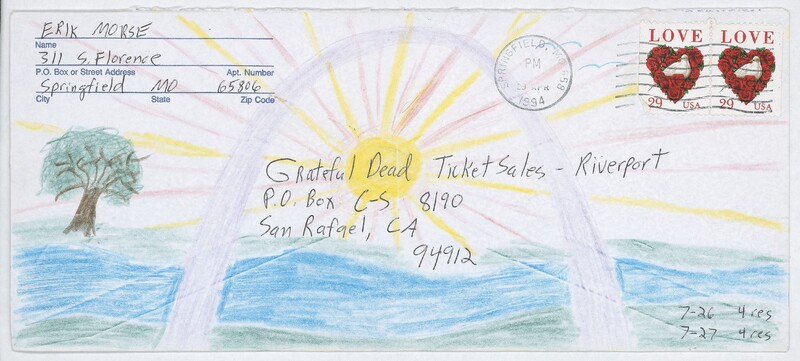 ERIK MORSE
Name
311 S. Florence
P.O. Box or Street Address Apt. Number
Springfield MO 65806
City State Zip Code
SPRINGFIELD, 658
PM
29 APR
1994
LOVE LOVE
29 USA 29 USA
Grateful Dead Ticket Sales - Riverport
P.O. Box C-S 8190
San Rafael, CA
94912
7-26 4 res
7-27 4 res